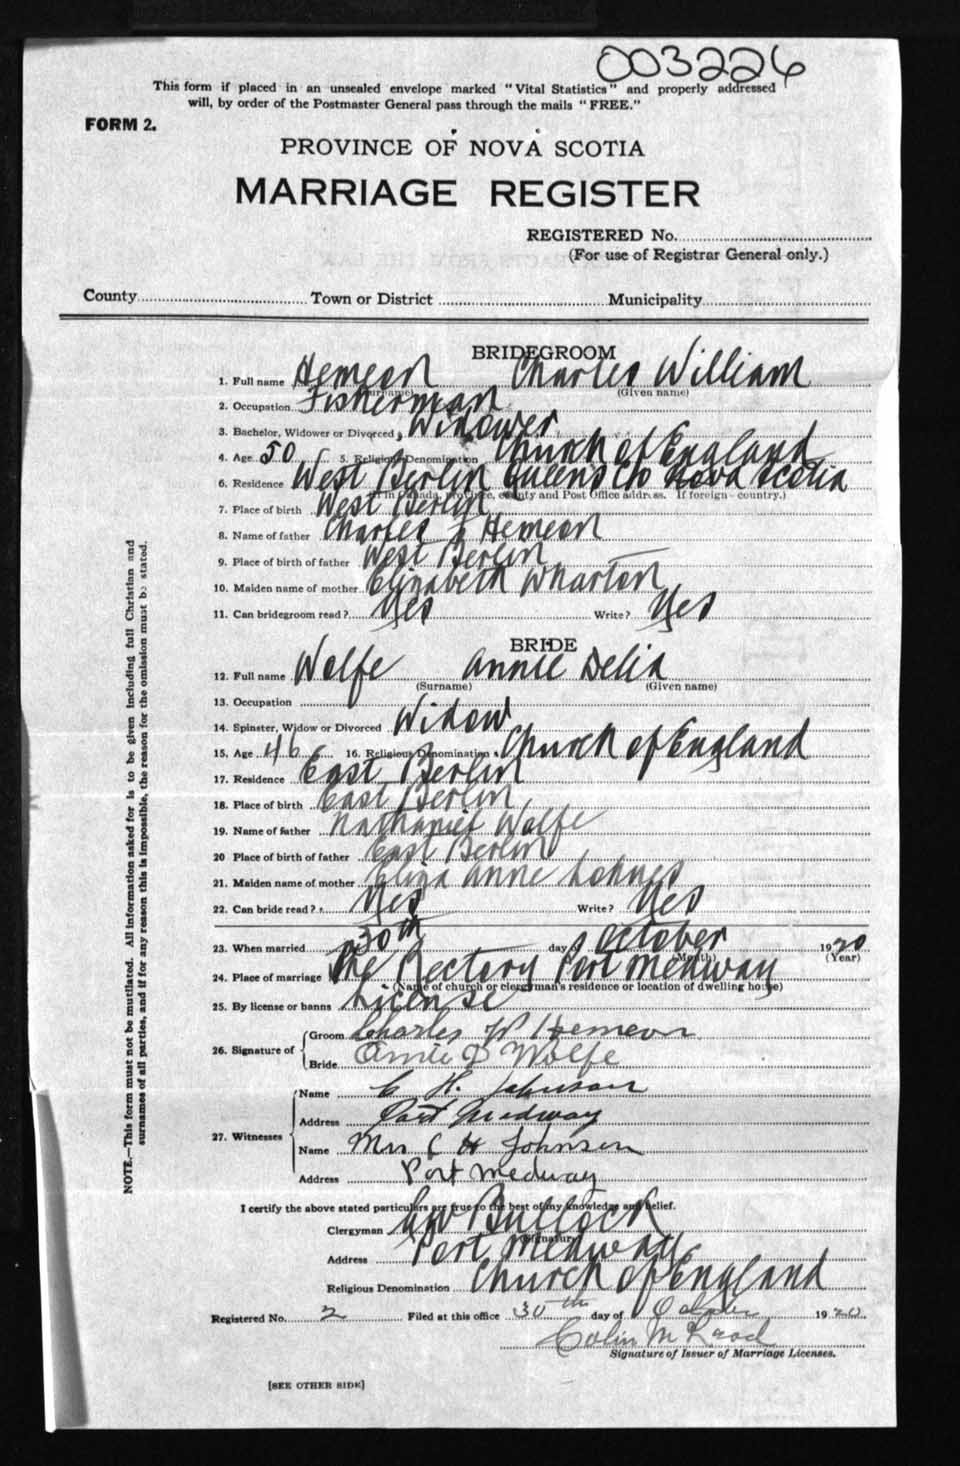 003226
This form if placed in an unsealed envelope marked "Vital Statistics" and properly addressed
will, by order of the Postmaster General pass through the mails "FREE."
FORM 2.
PROVINCE OF NOVA SCOTIA
MARRIAGE REGISTER
REGISTERED No.
(For use of Registrar General only.)
County Town or District Municipality
BRIDEGROOM
1. Full name Hemeon Charles William
(Surname) (Given name)
2. Occupation Fisherman
3. Bachelor, Widower or Divorced Widower
4. Age 50 5. Religious Denomination Church of England
6. Residence West Berlin Queens Co Nova Scotia
(If in Canada, province, county and Post Office address. If foreign - country.)
7. Place of birth West Berlin
8. Name of father Charles Hemeon
9. Place of birth of father West Berlin
10. Maiden name of mother Elizabeth Wharton
11. Can bridegroom read? Yes Write? Yes
BRIDE
12. Full name Wolfe Annie Delia
(Surname) (Given name)
13. Occupation
14. Spinster, Widow or Divorced Widow
15. Age 46 16. Religious Denomination Church of England
17. Residence East Berlin
18. Place of birth East Berlin
19. Name of father Nathaniel Wolfe
20 Place of birth of father East Berlin
21. Maiden name of mother Eliza Anne Lohnes
22. Can bride read? Yes Write? Yes
23. When married 30th day of October 1920
(Month) (Year)
24. Place of marriage The Rectory Port Medway
(Name of church or clergyman's residence or location of dwelling house)
25. By license or banns License
26. Signature of Groom Charles W Hemeon
Bride Annie D Wolfe
27. Witnesses Name C H. Johnson
Address Port Medway
Name Mrs C H Johnson
Address Port Medway
I certify the above stated particulars are true to the best of my knowledge and belief.
Clergyman Bullock
(Signature)
Address Port Medway
Religious Denomination Church of England
Registered No. 2 Filed at this office 30th day of October 1920
Colin M
Signature of Issuer of Marriage Licenses.
[SEE OTHER SIDE]
NOTE.—This form must not be mutilated. All information asked for is to be given including full Christian and
surnames of all parties, and if for any reason this is impossible, the reason for the omission must be stated.